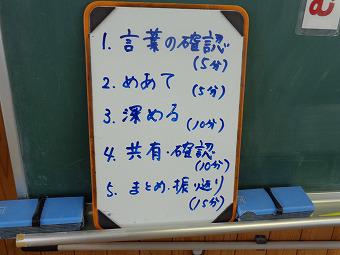 1. 言葉の確認
(5分)
2. めあて (5分)
3. 深める (10分)
4. 共有・確認
(10分)
5. まとめ・振り返り
(15分)
む